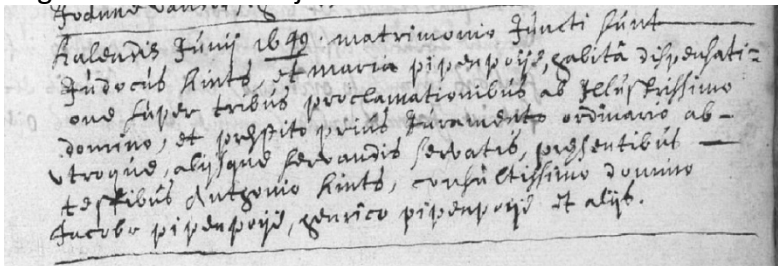 Kalendis Junij 1649 matrimonio juncti sunt
Judocus Kints, et maria pipenpoije, habita dispensati=
one super tribus proclamationibus ab Illustrissimo
domino, et prestito prius Juramento ordinario ab-
utroque, alijsque servandis servatis, presentibus
testibus Anthonio Kints, consultissimo domino
Jacobo pipenpoije, henrico pipenpoije et alijs.